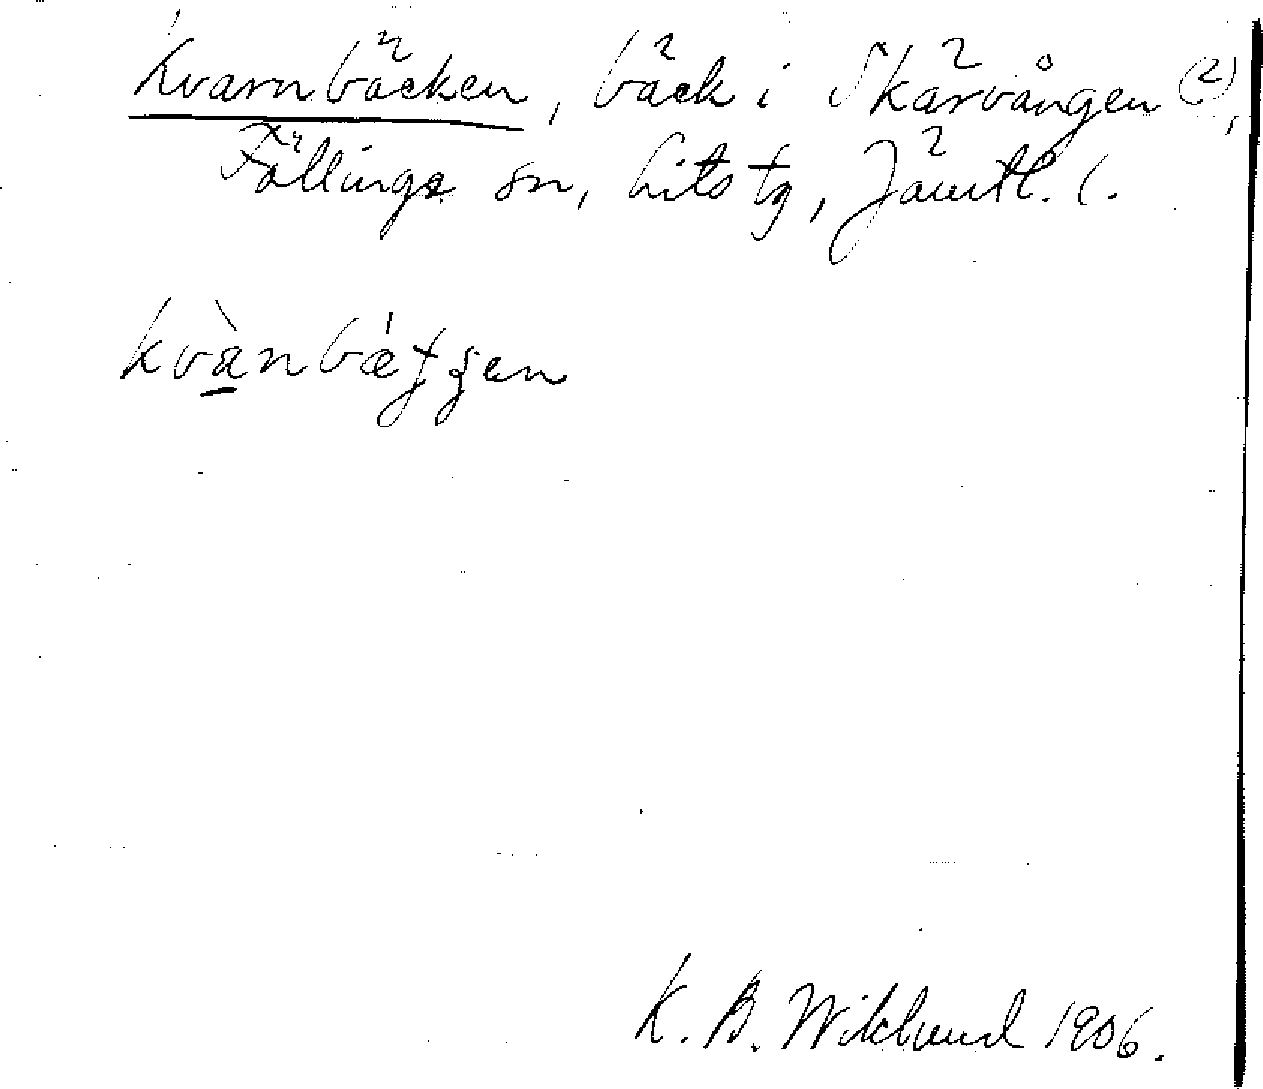 Kvarnbäcken, bäck i Skärvången (2),
Föllinge sn, Lits tg, Jämtl. l.
kvànbǽtʃʃen
K. B. Wiklund 1906.